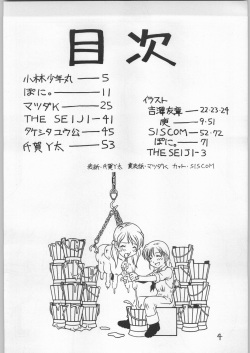 目次
小林少年丸 — 5
ぱに。 — 11
マツダK — 25
THE SEIJI — 41
タケシタユウ公 — 45
氏賀Y太 — 53
イラスト
吉澤友章 — 22・23・24
9・51
SISCOM — 52・72
ぱに。 — 71
THE SEIJI — 3
表紙・氏賀Y太 裏表紙・マツダK カット・SISCOM
4